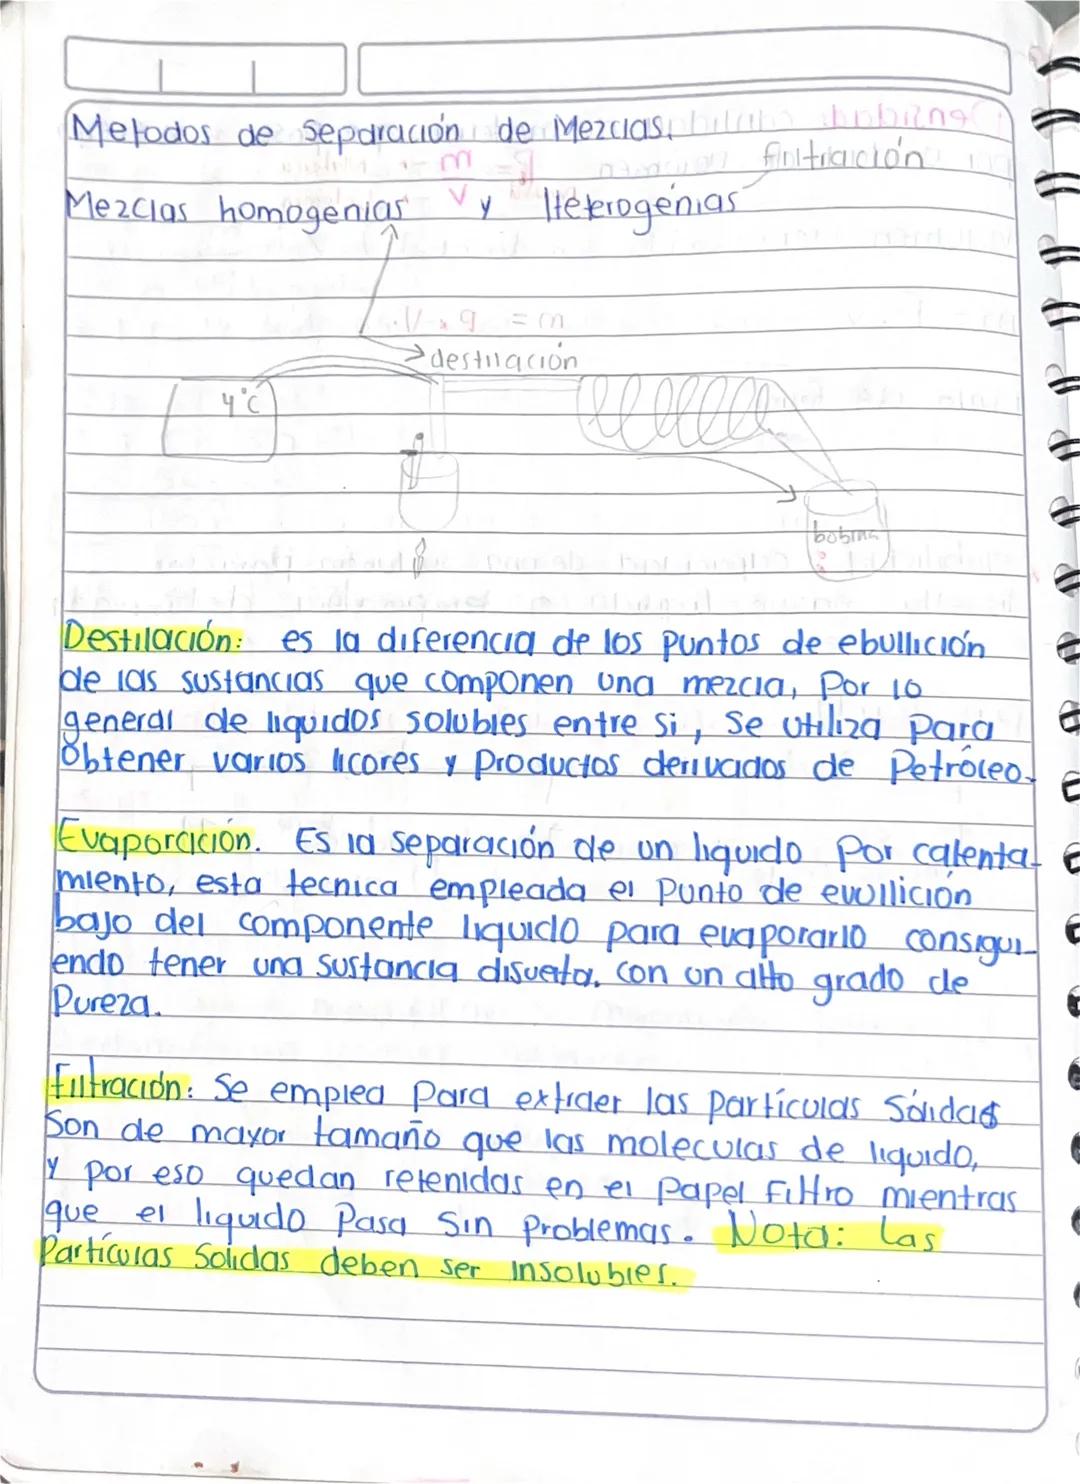 Metodos de separación de Mezclas.
finltración
Mezclas homogenias y Heterogénias
destilación
4°C
bobina
Destilación: es la diferencia de los puntos de ebullición
de las sustancias que componen una mezcla, Por lo
general de liquidos solubles entre si, Se utiliza Para
Obtener varios licores y Productos derivados de Petróleo.
Evaporación. Es la separación de un liquido Por calenta-
miento, esta tecnica empleada el Punto de evullición
bajo del componente liquido para evaporarlo consigui-
endo tener una sustancia disuelta. con un alto grado de
Pureza.
Filtración: Se emplea Para extraer las partículas Sólidas
Son de mayor tamaño que las moleculas de liquido,
y por eso quedan retenidas en el Papel Filtro mientras
que el liquido Pasa Sin Problemas. Nota: Las
Partículas Solidas deben ser Insolubles.